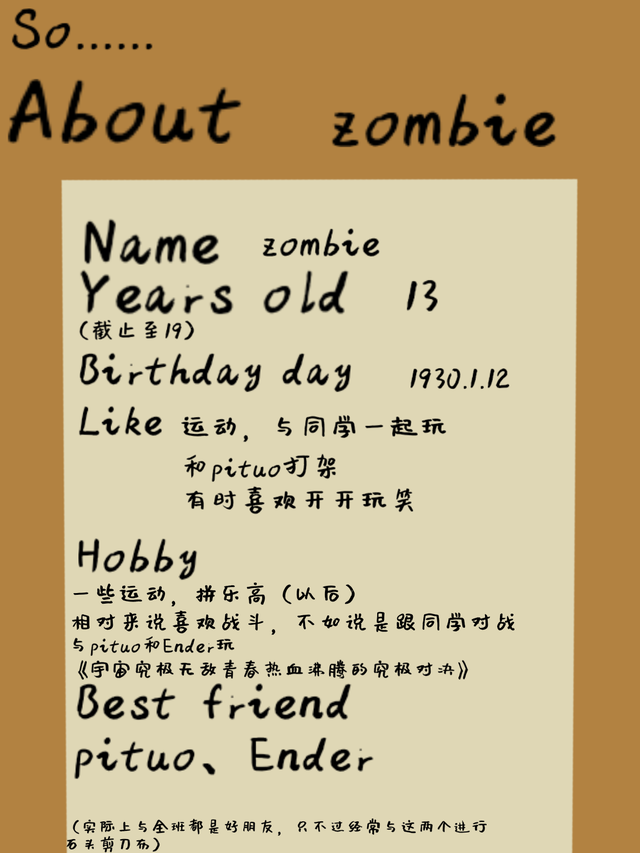 So......
About zombie
Name zombie
Years old 13
(截止至19)
Birthday day 1930.1.12
Like 运动，与同学一起玩
和pituo打架
有时喜欢开开玩笑
Hobby
一些运动，拼乐高（以后）
相对来说喜欢战斗，不如说是跟同学对战
与pituo和Ender玩
《宇宙究极无敌青春热血沸腾的究极对决》
Best friend
pituo、Ender
（实际上与全班都是好朋友，只不过经常与这两个进行
石头剪刀布）